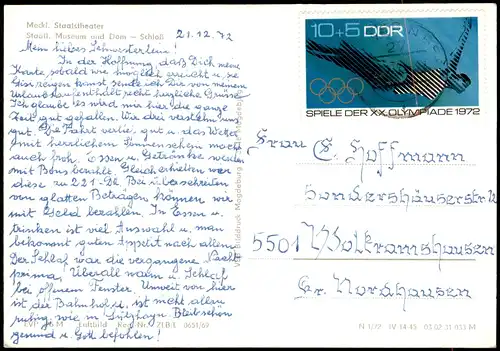 Meckl. Staatstheater
Staatl. Museum und Dom – Schloß
21.12.72
Mein liebes Schwesterlein!
In der Hoffnung, daß Dich meine
Karte sobald wie möglich erreicht u. sie
sende ich Dir von meinem
Urlaubsaufenthalt recht herzliche Grüße.
Ich glaube es wird mir hier die ganze
Zeit gut gefallen. Wir drei verstehen uns
gut. Die Fahrt verlief gut u. das Wetter
mit herrlichem Sonnenschein macht
auch froh. Essen u. Getränke werden
mit Bons bezahlt. Gleich erhielten wir
diese zu 221.- Bei überschreiten
von glatten Beträgen können wir
mit Geld bezahlen. In Essen u.
trinken ist viel Auswahl u. man
bekommt guten Appetit nach allem.
Der Schlaf war die vergangene Nacht
prima. Überall warm u. Schlaf
bei offenem Fenster. Unweit von hier
ist der Bahnhof u. ist nicht allzu
ruhig, wie in Bleib schön
gesund u. Gott befohlen!
Bild und Heimat
10+5 DDR
SPIELE DER XX. OLYMPIADE 1972
Frau E. Hoffmann
Sondershäuserstr.
5501 Wolkramshausen
Kr. Nordhausen
Luftbild ZLB/L 0651/69
N 1/72 IV-14-45 03 02 31 033 M